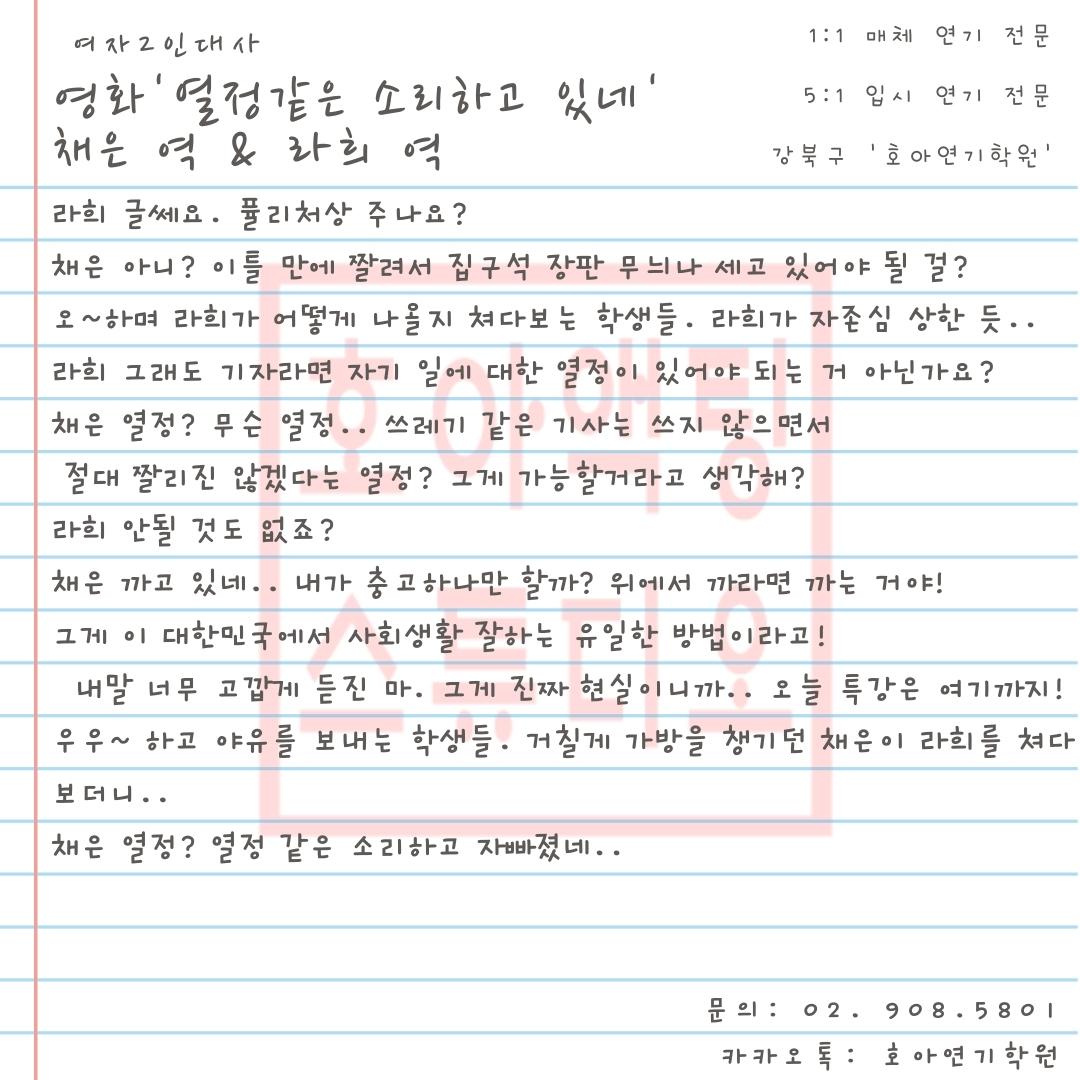 여자2인대사
영화'열정같은 소리하고 있네'
채은 역 & 라희 역
1:1 매체 연기 전문
5:1 입시 연기 전문
강북구 '호아연기학원'
라희 글쎄요. 퓰리처상 주나요?
채은 아니? 이틀 만에 짤려서 집구석 장판 무늬나 세고 있어야 될 걸?
오~하며 라희가 어떻게 나올지 쳐다보는 학생들. 라희가 자존심 상한 듯..
라희 그래도 기자라면 자기 일에 대한 열정이 있어야 되는 거 아닌가요?
채은 열정? 무슨 열정.. 쓰레기 같은 기사는 쓰지 않으면서
절대 짤리진 않겠다는 열정? 그게 가능할거라고 생각해?
라희 안될 것도 없죠?
채은 까고 있네.. 내가 충고하나만 할까? 위에서 까라면 까는 거야!
그게 이 대한민국에서 사회생활 잘하는 유일한 방법이라고!
내말 너무 고깝게 듣진 마. 그게 진짜 현실이니까.. 오늘 특강은 여기까지!
우우~ 하고 야유를 보내는 학생들. 거칠게 가방을 챙기던 채은이 라희를 쳐다
보더니..
채은 열정? 열정 같은 소리하고 자빠졌네..
호아액팅
스튜디오
문의: 02. 908.5801
카카오톡: 호아연기학원